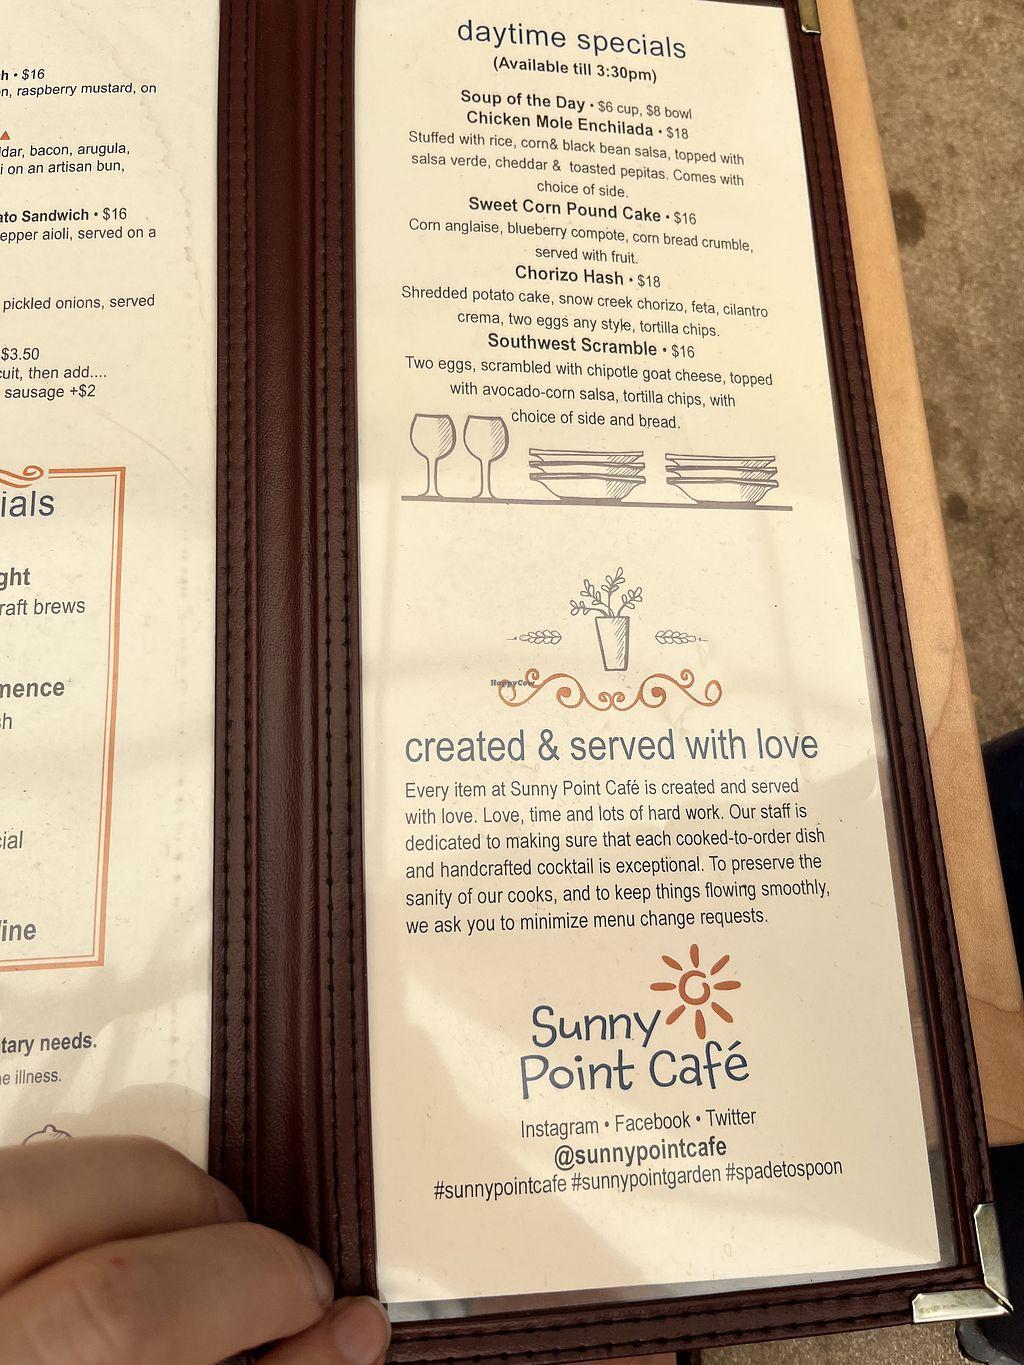 h • $16
n, raspberry mustard, on
dar, bacon, arugula,
i on an artisan bun,
ato Sandwich • $16
epper aioli, served on a
pickled onions, served
$3.50
cuit, then add....
sausage +$2
ials
ght
raft brews
mence
sh
cial
ine
tary needs.
e illness.
daytime specials
(Available till 3:30pm)
Soup of the Day • $6 cup, $8 bowl
Chicken Mole Enchilada • $18
Stuffed with rice, corn& black bean salsa, topped with
salsa verde, cheddar & toasted pepitas. Comes with
choice of side.
Sweet Corn Pound Cake • $16
Corn anglaise, blueberry compote, corn bread crumble,
served with fruit.
Chorizo Hash • $18
Shredded potato cake, snow creek chorizo, feta, cilantro
crema, two eggs any style, tortilla chips.
Southwest Scramble • $16
Two eggs, scrambled with chipotle goat cheese, topped
with avocado-corn salsa, tortilla chips, with
choice of side and bread.
HappyCow
created & served with love
Every item at Sunny Point Café is created and served
with love. Love, time and lots of hard work. Our staff is
dedicated to making sure that each cooked-to-order dish
and handcrafted cocktail is exceptional. To preserve the
sanity of our cooks, and to keep things flowing smoothly,
we ask you to minimize menu change requests.
Sunny
Point Café
Instagram • Facebook • Twitter
@sunnypointcafe
#sunnypointcafe #sunnypointgarden #spadetospoon